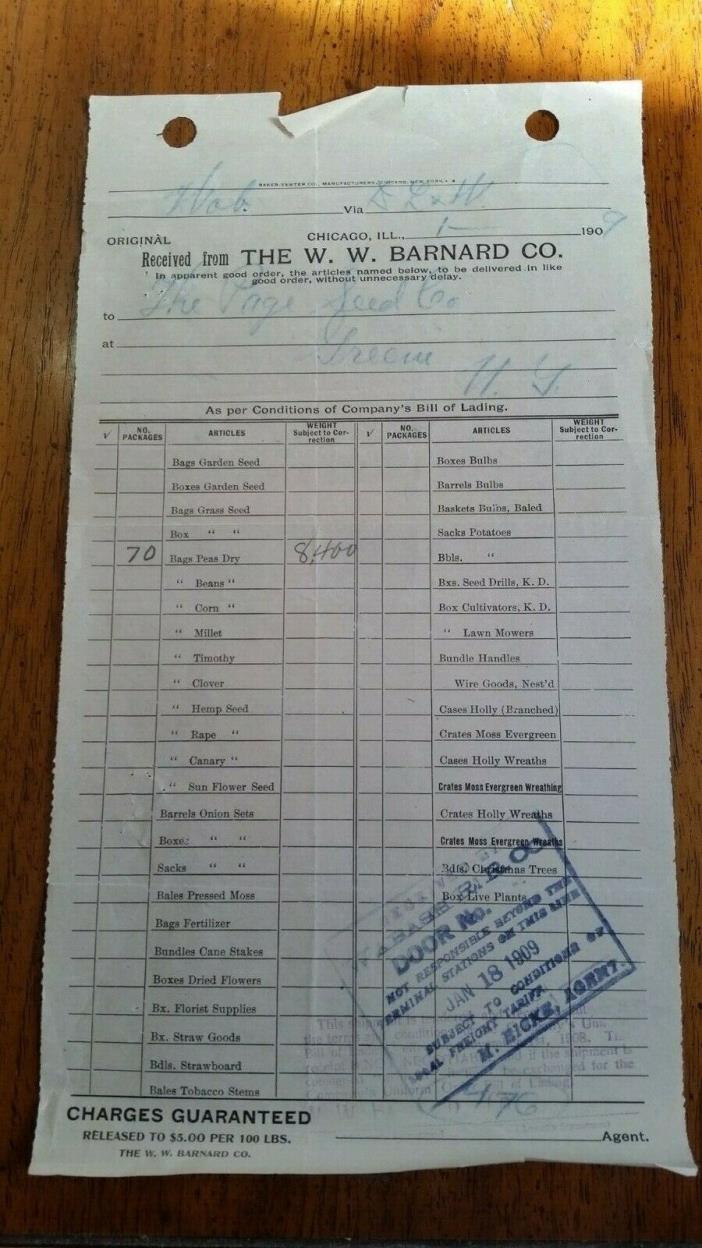 Wab. Via D L & W
ORIGINAL CHICAGO, ILL., 1— 1909
Received from THE W. W. BARNARD CO.
In apparent good order, the articles named below, to be delivered in like
good order, without unnecessary delay.
to The Page Seed Co
at Greene
N. Y.
As per Conditions of Company's Bill of Lading.
√ NO. PACKAGES ARTICLES WEIGHT Subject to Correction √ NO. PACKAGES ARTICLES WEIGHT Subject to Correction
Bags Garden Seed Boxes Bulbs
Boxes Garden Seed Barrels Bulbs
Bags Grass Seed Baskets Bulbs, Baled
Box " " Sacks Potatoes
70 Bags Peas Dry 8,400 Bbls. "
" Beans " Bxs. Seed Drills, K. D.
" Corn " Box Cultivators, K. D.
" Millet " Lawn Mowers
" Timothy Bundle Handles
" Clover Wire Goods, Nest'd
" Hemp Seed Cases Holly (Branched)
" Rape " Crates Moss Evergreen
" Canary " Cases Holly Wreaths
" Sun Flower Seed Crates Moss Evergreen Wreathing
Barrels Onion Sets Crates Holly Wreaths
Boxes " " Crates Moss Evergreen Wreaths
Sacks " " Bdls. Christmas Trees
Bales Pressed Moss Box Live Plants
Bags Fertilizer
Bundles Cane Stakes
Boxes Dried Flowers
Bx. Florist Supplies
Bx. Straw Goods
Bdls. Strawboard
Bales Tobacco Stems
WABASH R. R. CO.
DOOR No.
NOT RESPONSIBLE BEYOND THE
TERMINAL STATIONS ON THIS LINE
JAN 18 1909
SUBJECT TO CONDITIONS OF
LOCAL FREIGHT TARIFF.
AGENT.
CHARGES GUARANTEED
RELEASED TO $5.00 PER 100 LBS.
THE W. W. BARNARD CO.
Agent.